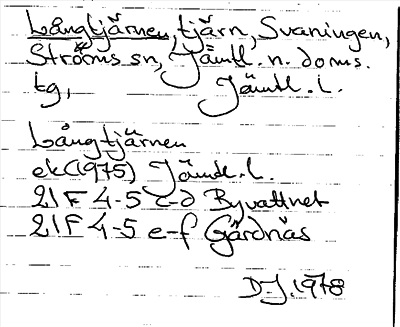 Långtjärnen, tjärn, Svaningen,
Ströms sn, Jämtl. n. doms.
tg, Jämtl. l.
Långtjärnen
ek(1975) Jämtl. l.
21F 4-5 c-d Byvattnet
21F 4-5 e-f Gärdnäs
D-J. 1978